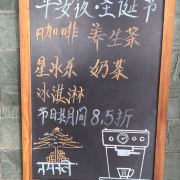 平安夜·圣诞节
咖啡 养生茶
星冰乐 奶茶
冰淇淋
节日其月间 8.5折